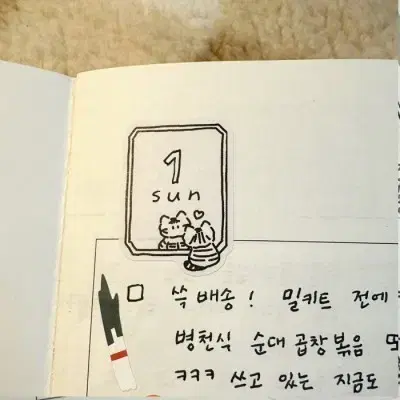 1
sun
쓱 배송! 밀키트 전에
병천식 순대곱창볶음
ㅋㅋㅋ 쓰고 있는 지금도